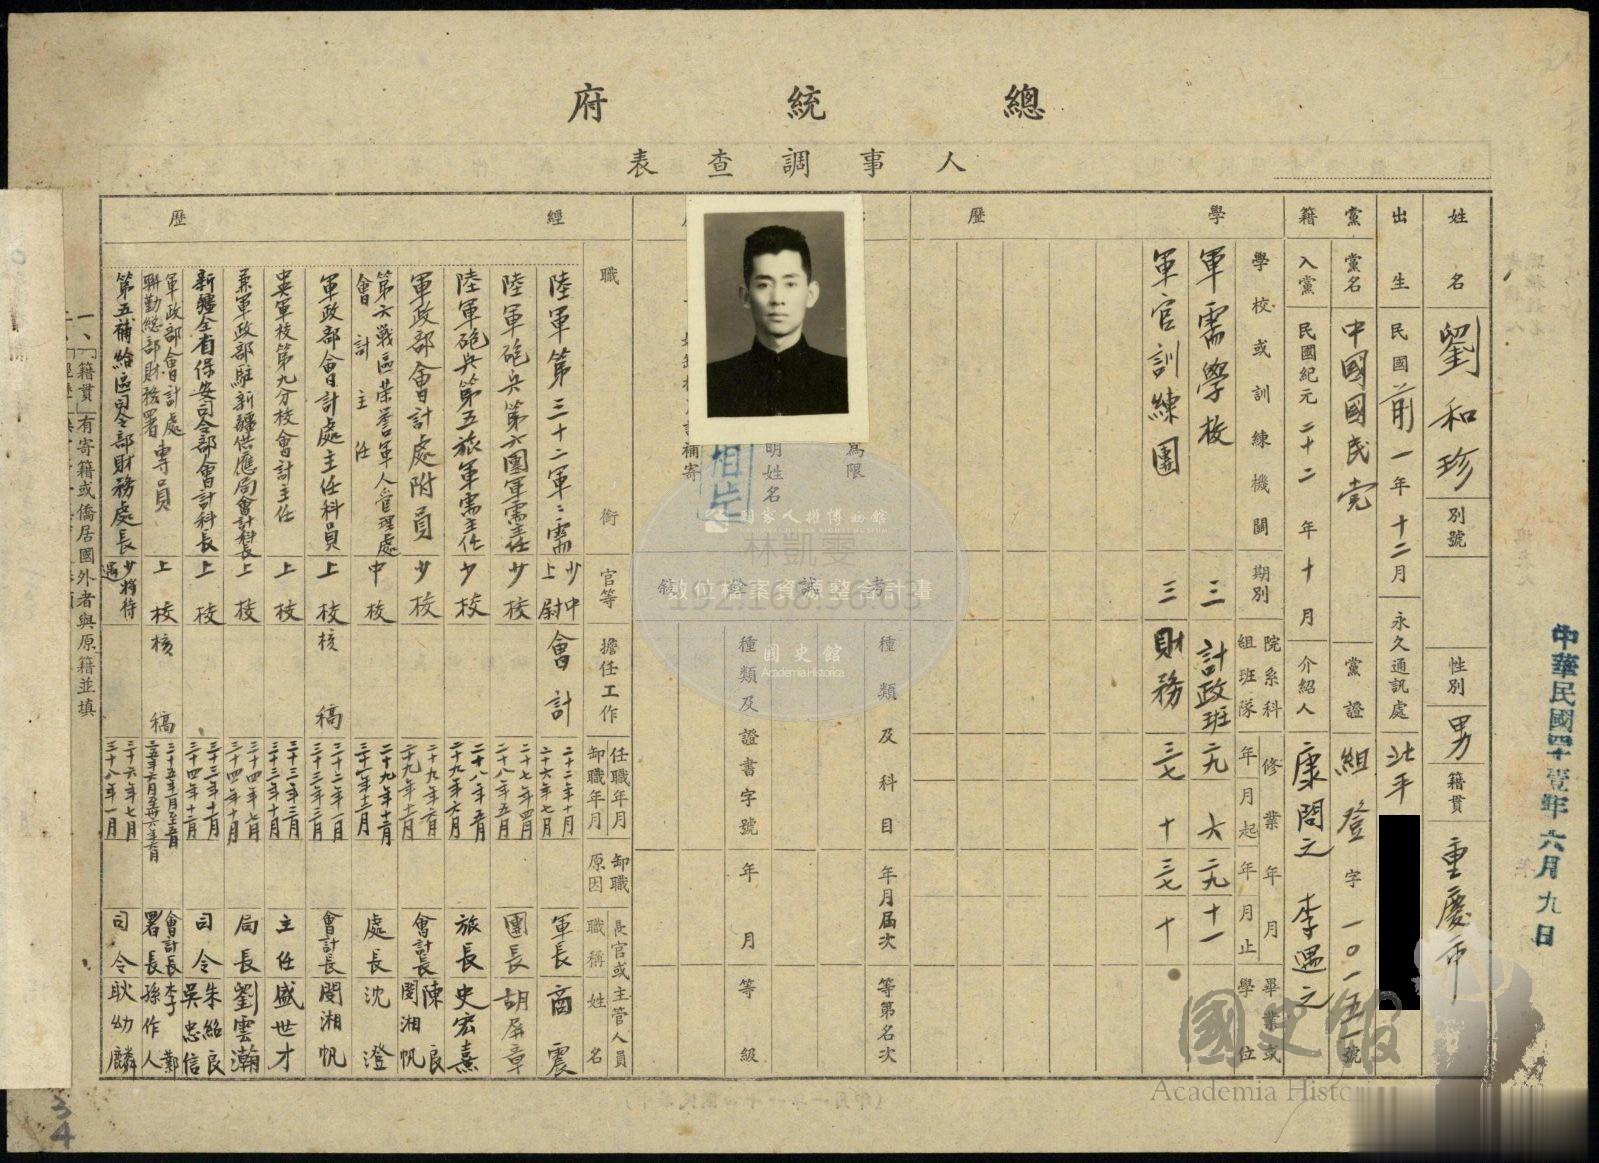 總統府
人事調查表
姓名 劉和珍 別號 性別 男 籍貫 重慶市
出生 民國前一年十二月 永久通訊處 北平
黨籍 黨名 中國國民党 黨證 組登字一〇一五號
入黨 民國紀元二十二年十月 介紹人 康問之 李遇之
學歷
學校或訓練機關 期別 院系科組班隊 修業年月 年月起 年月止 畢業或學位
軍需學校 三 計政班 二九 六 二九 十一
軍官訓練團 三 財務 三七 十 三七 十
為限
明姓名
補寄
相片
考試銓敘
種類及科目 年月屆次 等第名次
種類及證書字號 年月 等級
經歷
職銜 官等 擔任工作 任職年月 卸職年月 卸職原因 長官或主管人員 職稱 姓名
陸軍第三十二軍軍需 少中上尉 會計 二十二年十月 二十六年七月 軍長 商震
陸軍砲兵第六團軍需主任 少校 二十七年四月 二十八年五月 團長 胡屏章
陸軍砲兵第五旅軍需主任 少校 二十八年五月 二十九年六月 旅長 史宏熹
軍政部會計處附員 少校 二十九年六月 二十九年十二月 會計長 陳良 聞湘帆
第六戰區榮譽軍人管理處會計主任 中校 二十九年十二月 三十一年十二月 處長 沈澄
軍政部會計處主任科員 上校 核稿 三十二年一月 三十三年三月 會計長 聞湘帆
中央軍校第九分校會計主任 上校 三十三年三月 三十三年十月 主任 盛世才
兼軍政部駐新疆供應局會計科長 上校 三十四年七月 三十四年十月 局長 劉雲瀚
新疆全省保安司令部會計科長 上校 三十三年十一月 三十四年十二月 司令 朱紹良 吳忠信
軍政部會計處 聯勤總部財務署 專員 上校 核稿 會計長 署長 孫作人
第五補給區司令部財務處長 少將待遇 三十六年七月 三十八年一月 司令 耿幼麟
一、「籍貫」有寄籍或僑居國外者與原籍並填
中華民國四十壹年六月九日
34
國家人權博物館
林凱雯
數位檔案資源整合計畫
192.168.96.63
國史館
Academia Historica
國史館
Academia Histo